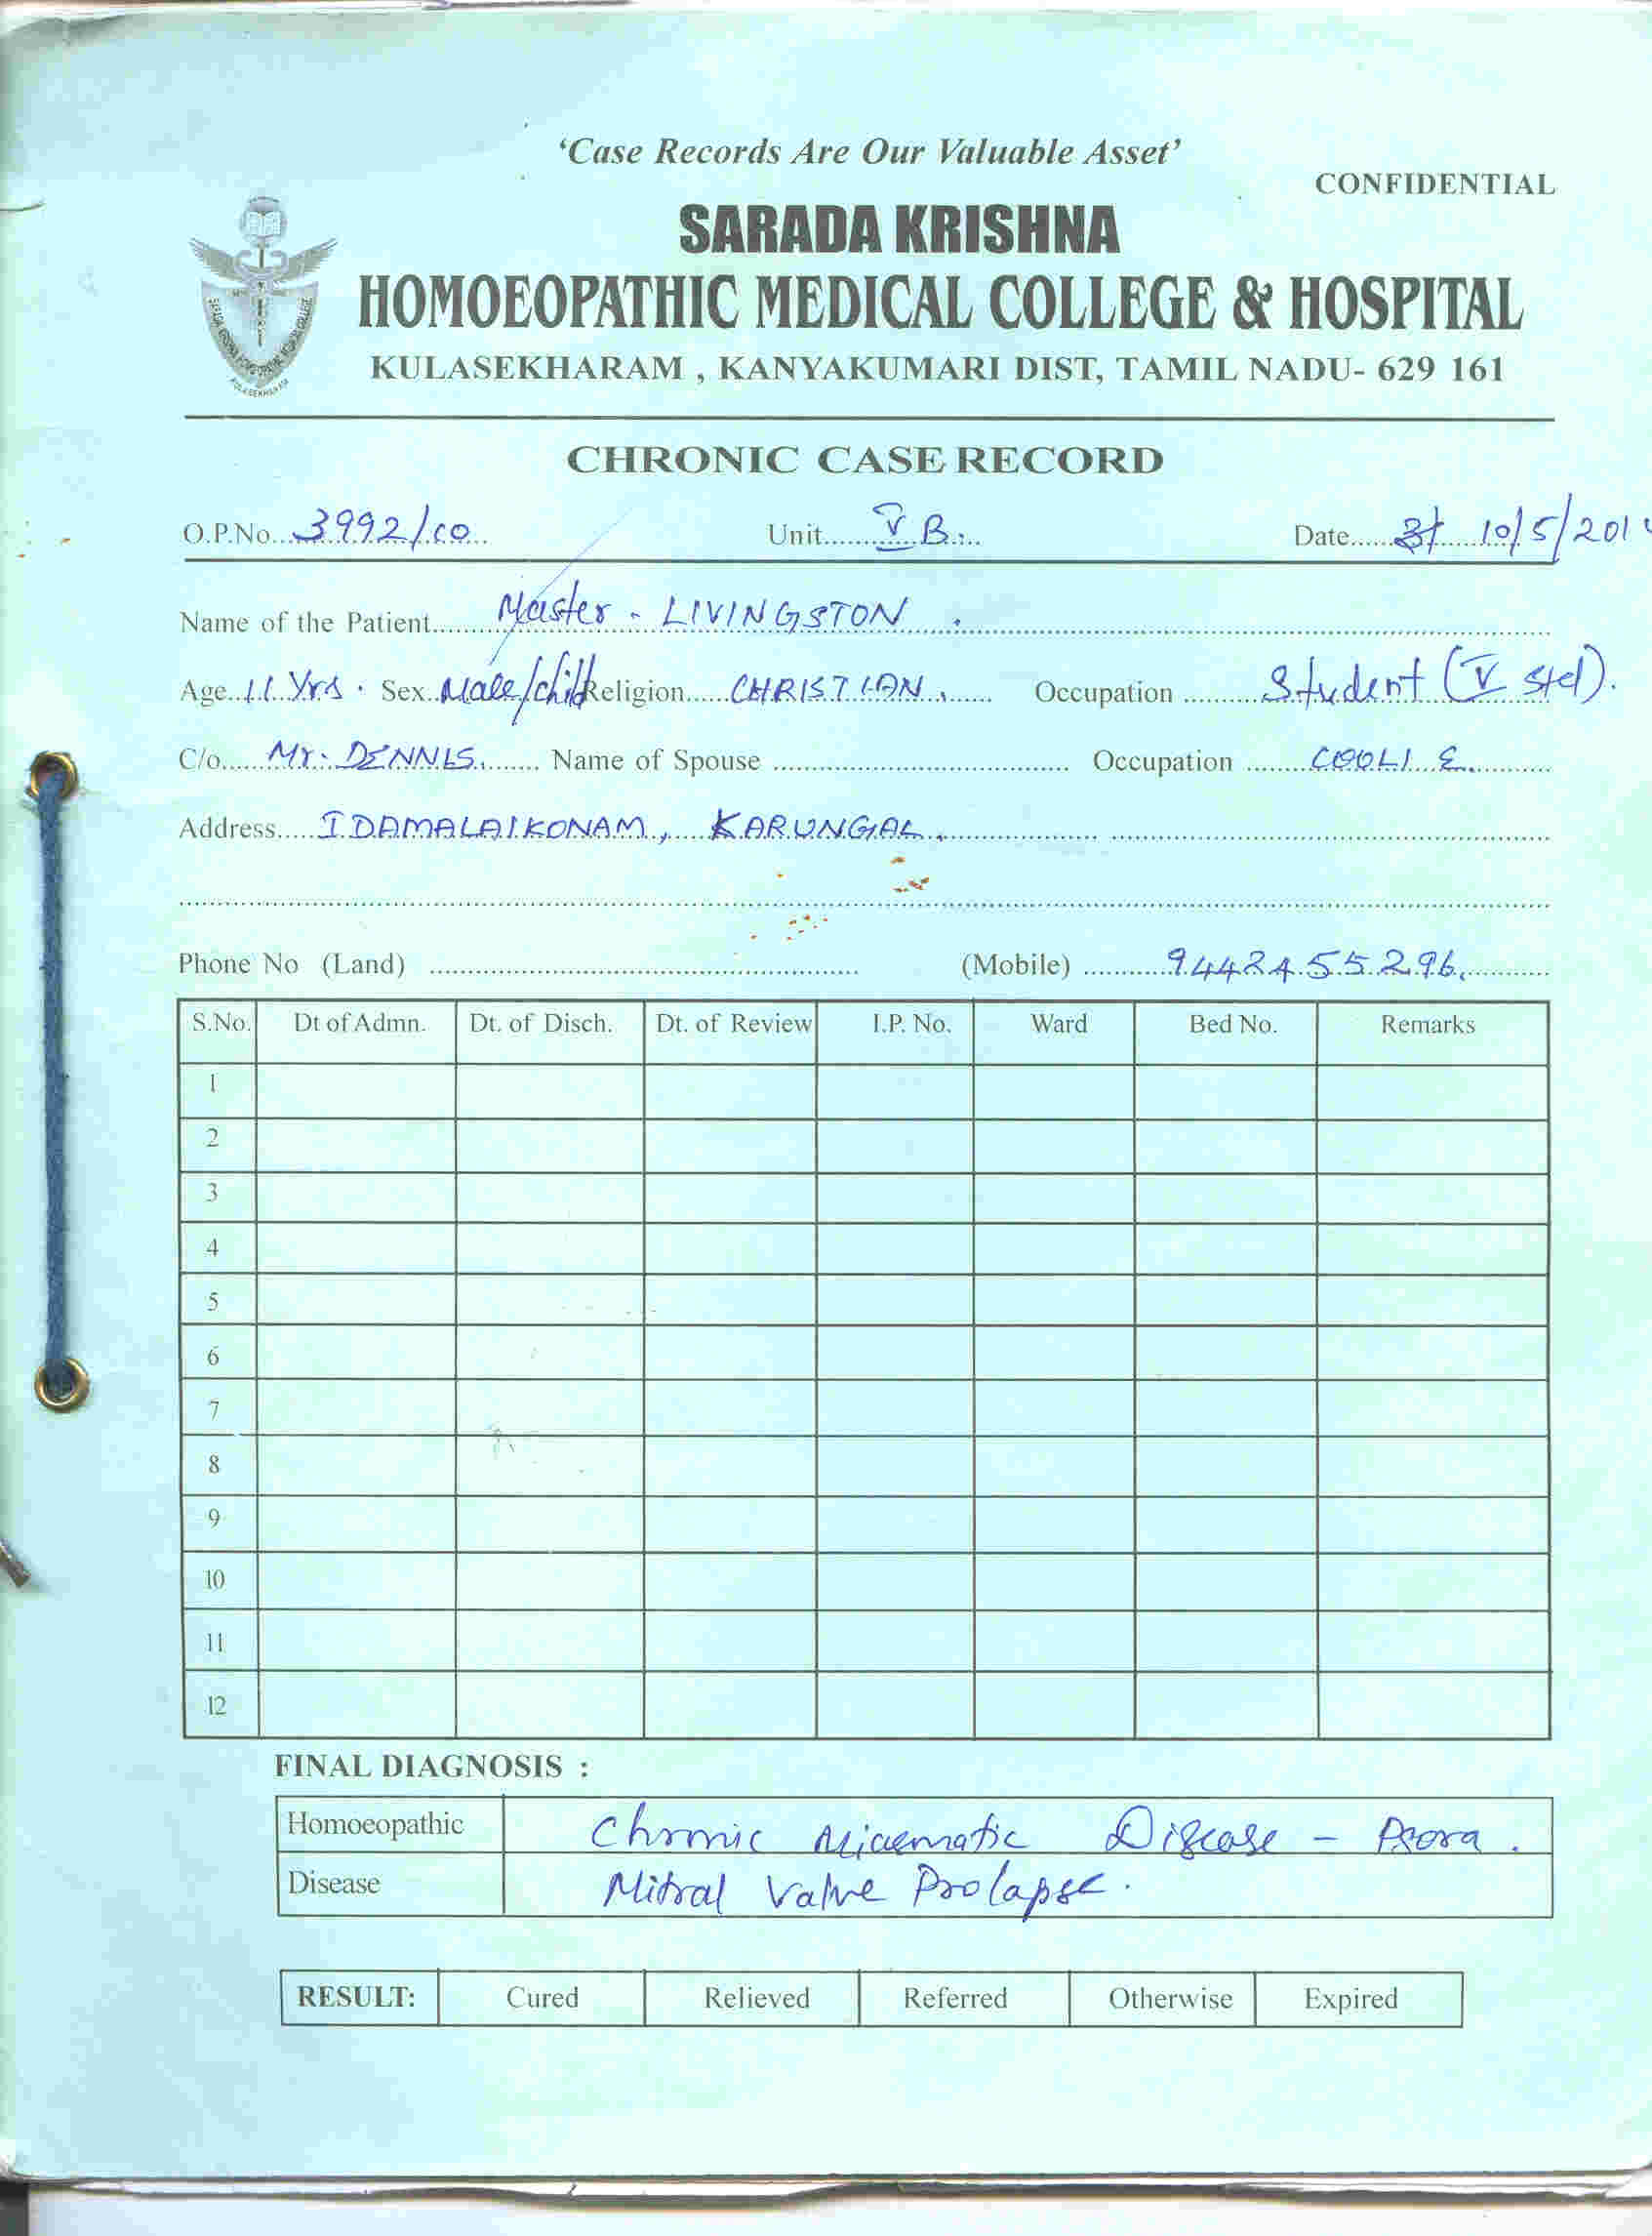 'Case Records Are Our Valuable Asset'
CONFIDENTIAL
SARADA KRISHNA
HOMOEOPATHIC MEDICAL COLLEGE & HOSPITAL
KULASEKHARAM , KANYAKUMARI DIST, TAMIL NADU- 629 161
CHRONIC CASE RECORD
O.P.No. 3992/10 Unit V B. Date 10/5/201
Name of the Patient Master - LIVINGSTON .
Age 11 Yrs . Sex Male/child Religion CHRISTIAN. Occupation Student (V std).
C/o Mr. DENNIS. Name of Spouse Occupation COOLIE.
Address IDAMALAIKONAM, KARUNGAL.
Phone No (Land) (Mobile) 9442455296.
S.No. Dt of Admn. Dt. of Disch. Dt. of Review I.P. No. Ward Bed No. Remarks
1
2
3
4
5
6
7
8
9
10
11
12
FINAL DIAGNOSIS :
Homoeopathic Chronic Miasmatic Disease - Psora .
Disease Mitral Valve Prolapse.
RESULT: Cured Relieved Referred Otherwise Expired